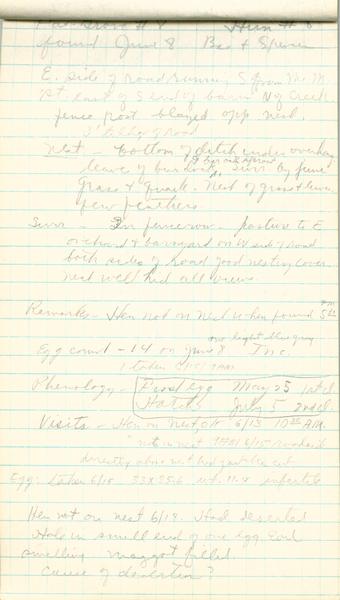 found June 8 Bas & Spencer
E. side of road running S from Mc M
Pt. east of S end of barn N of Creek
fence post blazed opp nest.
3' E edge of road
Nest - bottom of ditch under overhang
leaves of burdock Surr. by June
grass & Quack. Nest of grass & leaves
few feathers
Surr - In fencerow. pasture to E
orchard & barnyard on W side of road
both sides of road good nesting cover
nest well hid all views
Remarks - Hen not on nest when found 5 PM
one light blue gray
Egg count - 14 on June 8 Inc.
1 taken 6/18
Phenology - First egg May 25 1st cl
Hatch July 5 2nd cl.
Visits - Hen on Nest OK 6/13 10 AM.
" not on nest 6/15 roadside
directly above nest had just been cut
Egg: taken 6/18 33x25.6 wt. 11.4 infertile
Hen not on nest 6/18. Had deserted
Hole in small end of one egg. Foul
smelling maggot filled.
cause of desertion?